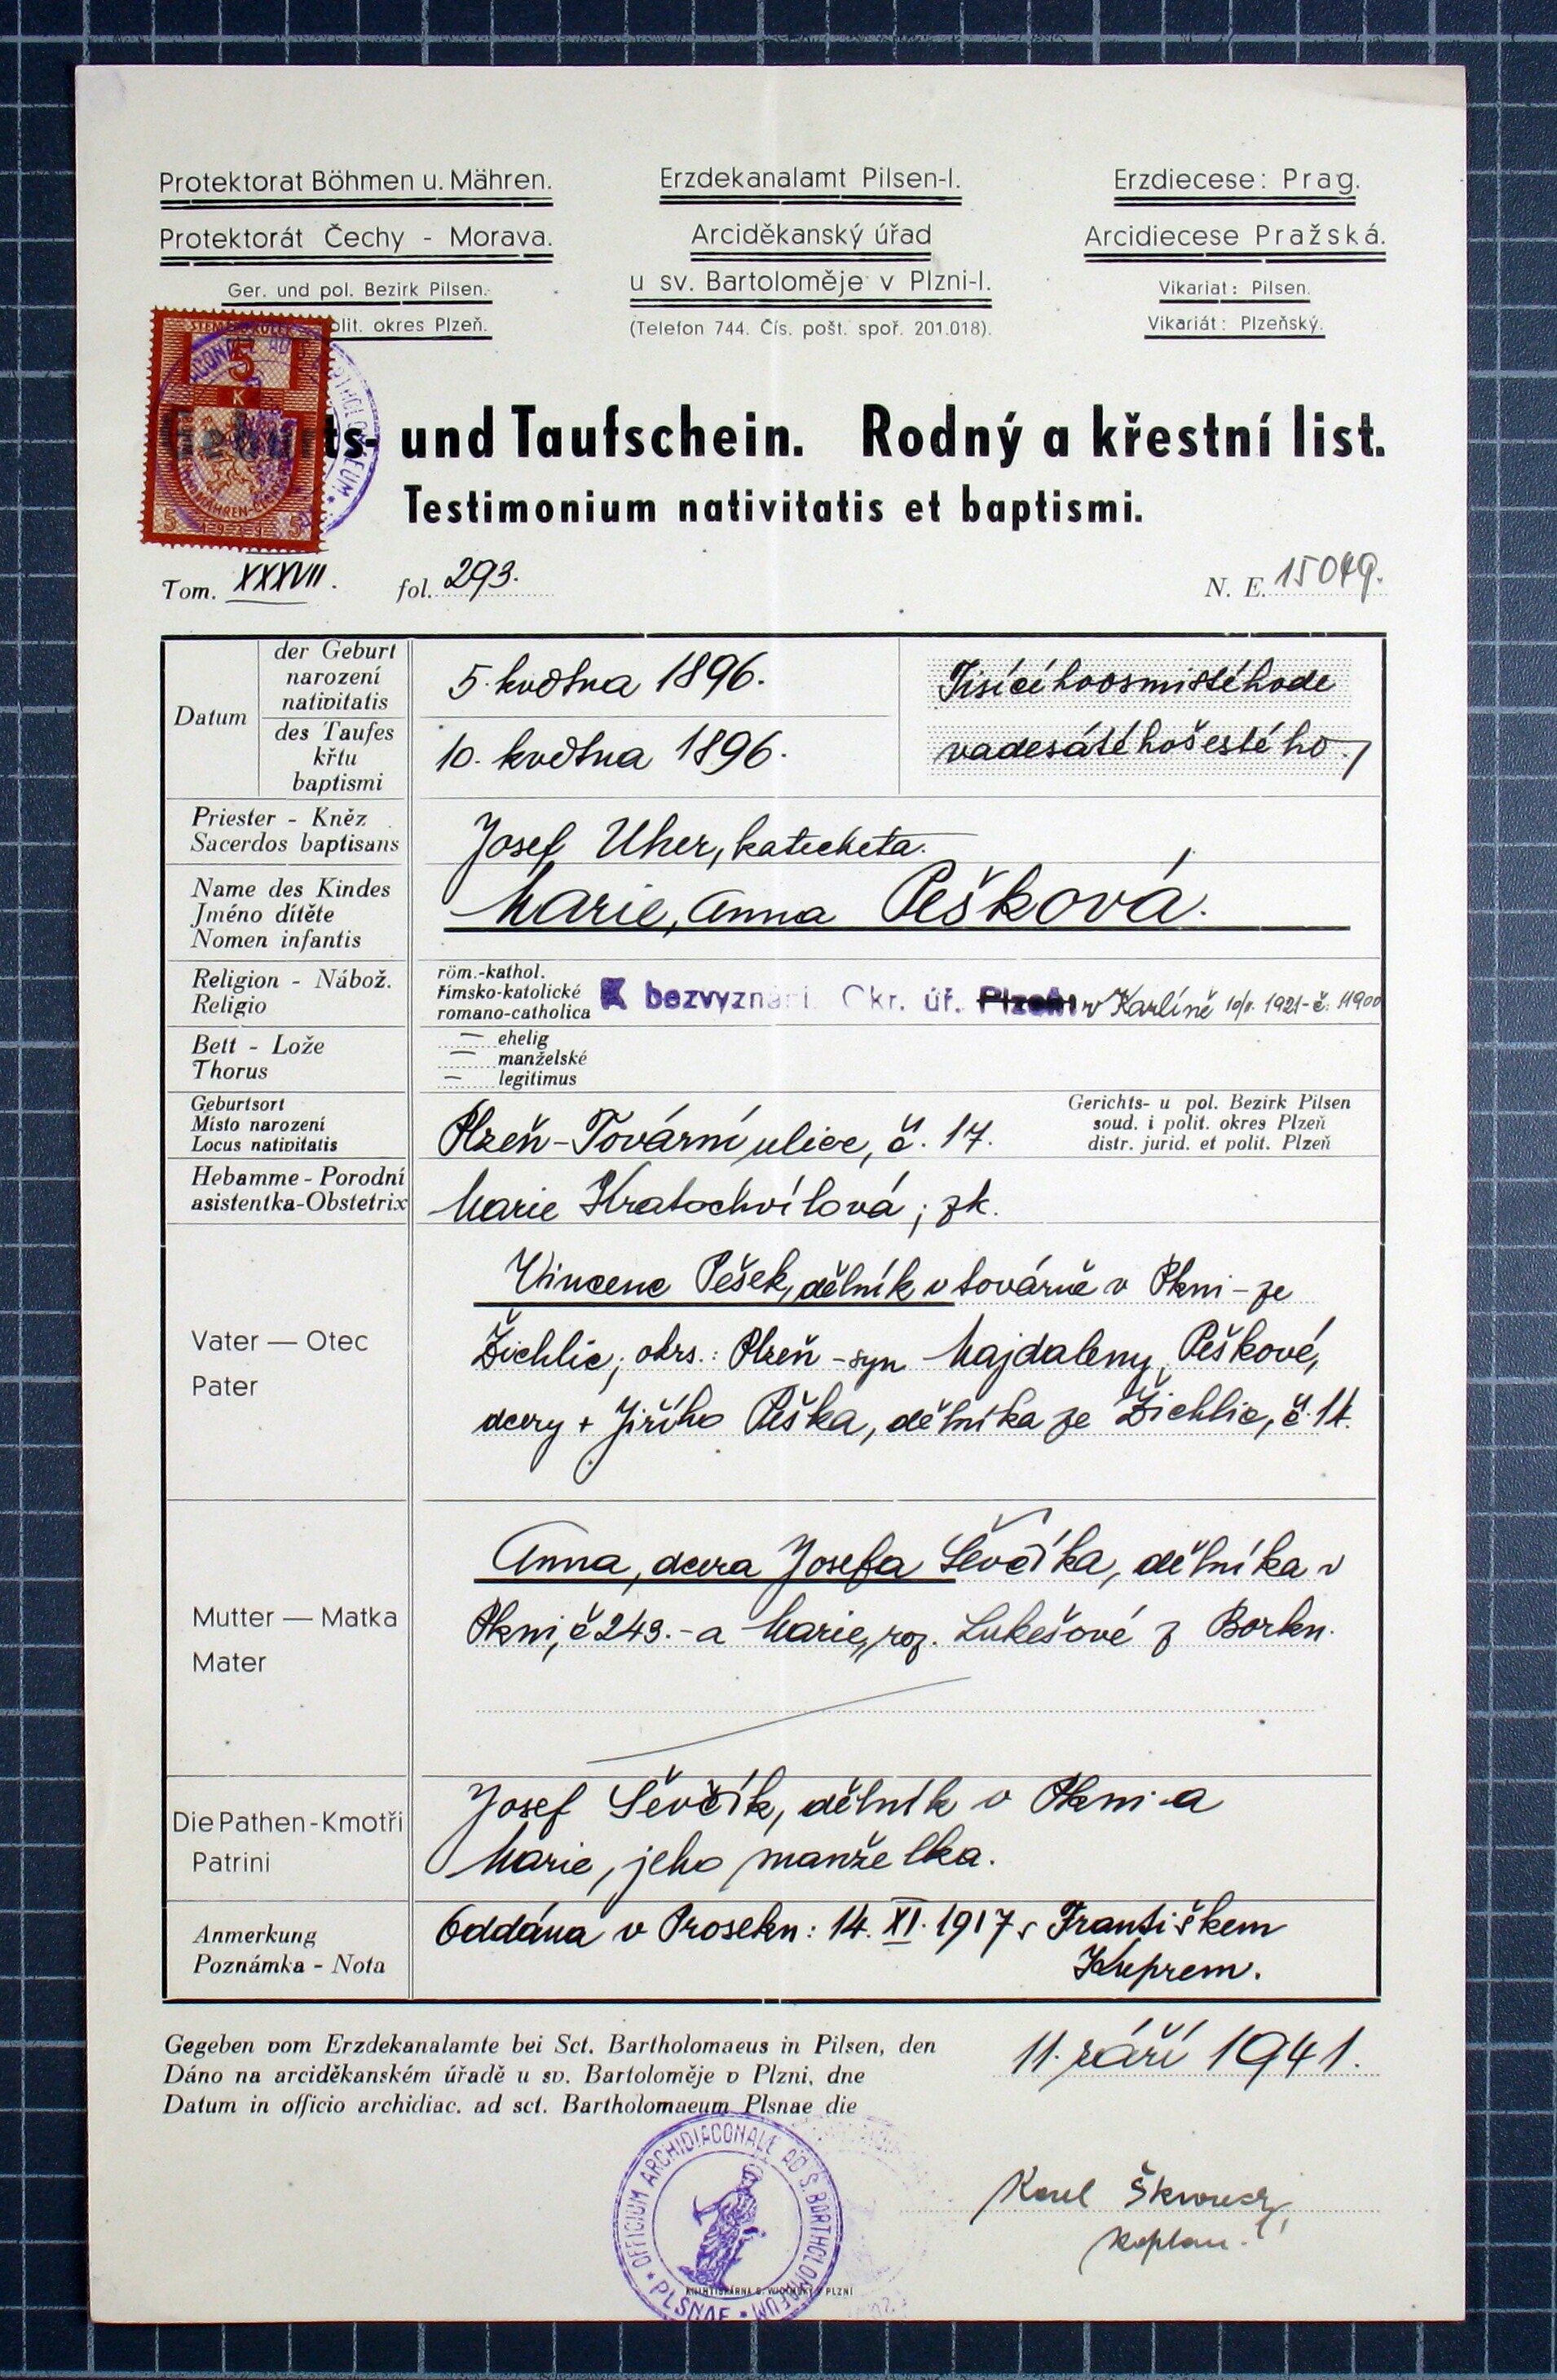 Protektorat Böhmen u. Mähren.
Protektorát Čechy - Morava.
Ger. und pol. Bezirk Pilsen.
polit. okres Plzeň.
Erzdekanalamt Pilsen-I.
Arciděkanský úřad
u sv. Bartoloměje v Plzni-I.
(Telefon 744. Čís. pošt. spoř. 201.018).
Erzdiecese: Prag.
Arcidiecese Pražská.
Vikariat: Pilsen.
Vikariát: Plzeňský.
5
K
5 1939 5
Geburts- und Taufschein. Rodný a křestní list.
Testimonium nativitatis et baptismi.
Tom. XXXVII. fol. 293. N. E. 15049.
Datum
der Geburt
narození
nativitatis
5. května 1896.
des Taufes
křtu
baptismi
10. května 1896.
Tisícíhoosmistéhode
vadesátéhošestého.
Priester - Kněz
Sacerdos baptisans
Josef Uher, katecheta.
Name des Kindes
Jméno dítěte
Nomen infantis
Marie, Anna Pešková.
Religion - Nábož.
Religio
röm.-kathol.
římsko-katolické
romano-catholica
K bezvyznání. Okr. úř. Plzeň v Karlíně 1921 - č. 11900
Bett - Lože
Thorus
— ehelig
— manželské
— legitimus
Geburtsort
Místo narození
Locus nativitatis
Plzeň - Tovární ulice, č. 17.
Gerichts- u pol. Bezirk Pilsen
soud. i polit. okres Plzeň
distr. jurid. et polit. Plzeň
Hebamme - Porodní
asistentka-Obstetrix
Marie Kratochvílová, zk.
Vater — Otec
Pater
Vincenc Pešek, dělník v továrně v Plzni - ze
Žichlic, okrs.: Plzeň - syn Majdaleny Peškové,
dcery + Jiřího Peška, dělníka ze Žichlic, č. 14.
Mutter — Matka
Mater
Anna, dcera Josefa Ševčíka, dělníka v
Plzni, č 243. - a Marie, roz. Lukešové z Borku.
Die Pathen - Kmotři
Patrini
Josef Ševčík, dělník v Plzni - a
Marie, jeho manželka.
Anmerkung
Poznámka - Nota
Oddána v Proseku: 14. XI. 1917 s Františkem
Kuprem.
Gegeben vom Erzdekanalamte bei Sct. Bartholomaeus in Pilsen, den
Dáno na arciděkanském úřadě u sv. Bartoloměje v Plzni, dne
Datum in officio archidiac. ad sct. Bartholomaeum Plsnae die
11. září 1941.
OFFICIUM ARCHIDIACONALE AD S. BARTHOLOMAEUM
* PLSNAE *
Karel
kaplan.